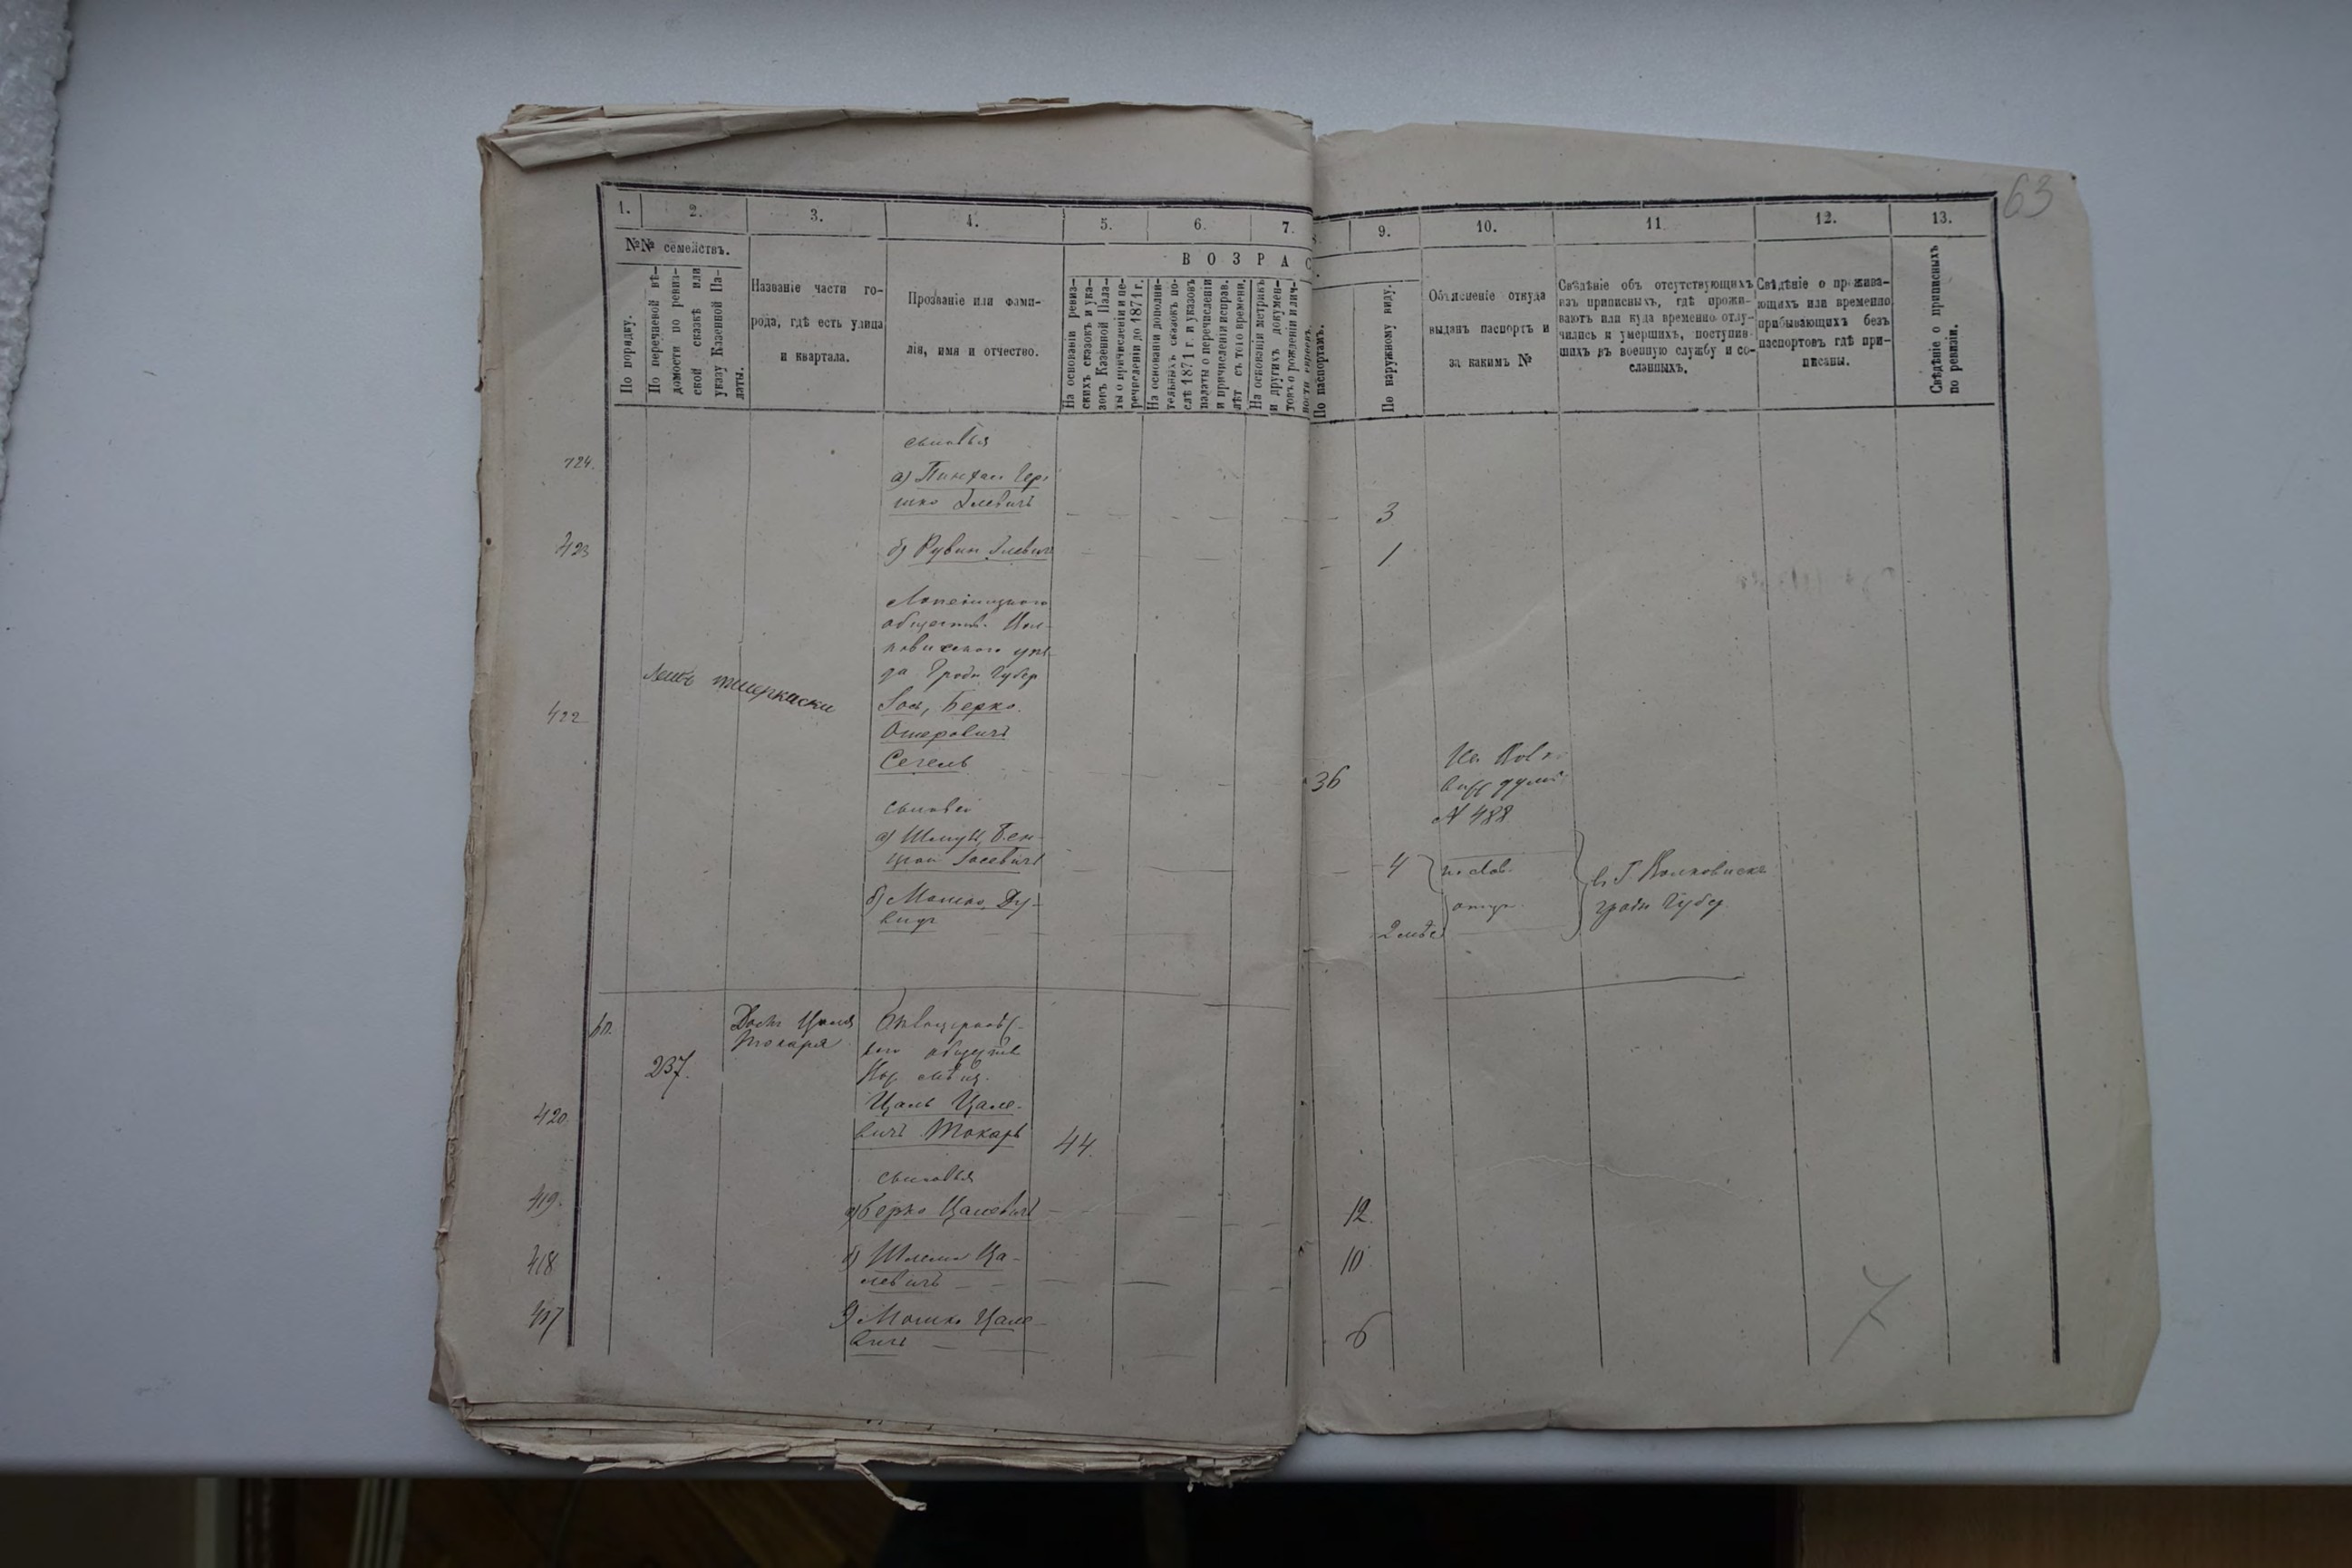 63
1. 2. 3. 4. 5. 6. 7. 9. 10. 11 12. 13.
№№ семействъ.
В О З Р А С
По порядку.
По перечневой вѣ-
домости по ревиз-
ской сказкѣ или
указу Казенной Па-
латы.
Названіе части го-
рода, гдѣ есть улица
и квартала.
Прозваніе или фами-
лія, имя и отчество.
На основаніи ревиз-
скихъ сказокъ и ука-
зовъ Казенной Пала-
ты о причисленіи и пе-
речисленіи до 1871 г.
На основаніи дополни-
тельныхъ сказокъ по-
слѣ 1871 г. и указовъ
палаты о перечисленіи
и причисленіи исправ.
лѣт съ того времени.
На основаніи метрикъ
и другихъ докумен-
товъ о рожденіи и лич-
ности евреевъ.
По паспортамъ.
По наружному виду.
Объясненіе откуда
выданъ паспортъ и
за какимъ №
Свѣдѣніе об отсутствующихъ
изъ приписныхъ, гдѣ прожи-
ваютъ или куда временно отлу-
чились и умершихъ, поступив-
шихъ въ военную службу и со-
сланныхъ.
Свѣдѣніе о прожива-
ющихъ или временно
прибывающихъ безъ
паспортовъ гдѣ при-
писаны.
Свѣдѣніе о приписныхъ
по ревизіи.
сыновья
424.
а) Пинхас Гер-
шко Элевичъ
3
423
б) Рувин Элевич
1
обществ. Вол-
ковискаго уѣз-
да Гродн. Губер
422
Іос, Берко
Ошеровичъ
Сегель
36
№ 488
сыновья
а) Шмуль, Бен-
ціон Іосевичъ
4
в Г. Волковиске
гродн Губер
б) Мошко, Ду-
видъ
2
Домъ Цаля
Токаря
237.
420
Цаль Цале-
вичъ Токарь
44.
сыновья
419.
а) Берко Цалевичъ
12.
418
б) Шлема Ца-
левичъ
10
417
в) Мошко Цале-
вичъ
6